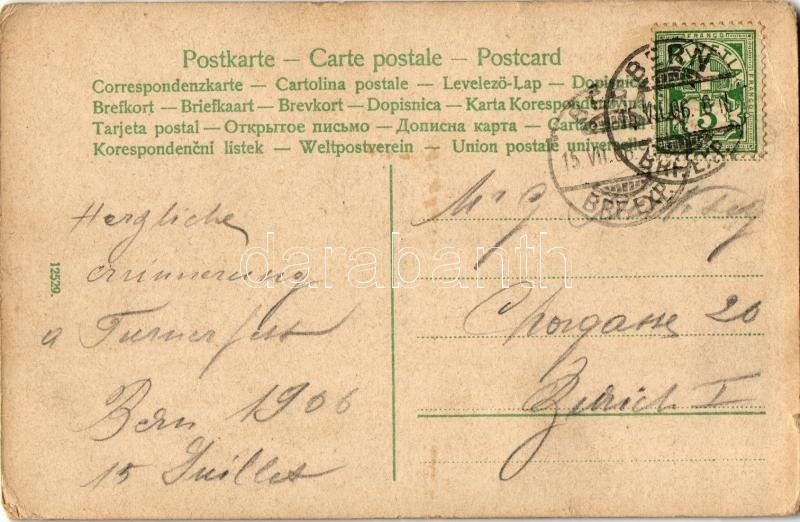 Postkarte — Carte postale — Postcard
Correspondenzkarte — Cartolina postale — Levelező-Lap — Dopisnice
Brefkort — Briefkaart — Brevkort — Dopisnica — Karta Korespondencyjna
Tarjeta postal — Открытое письмо — Дописна карта — Carta
Korespondenční listek — Weltpostverein — Union postale universelle
FRANCO
HELVETIA
5
BERN
15.VII.06.
BRF.EXP.
15.VII.06.
BRF.EXP.
Herzliche
errinnerung
a Turnerfest
Bern 1906
15 Juillet
12529.
Chorgasse 20
Zurich I
darabanth